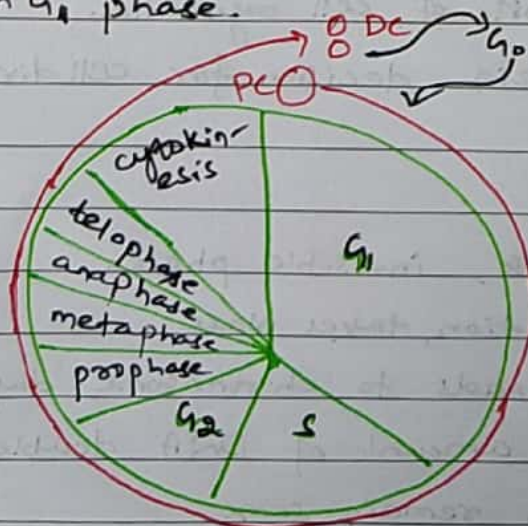 G1 phase.
DC
G0
PC
cytokin-
esis
G1
telophase
anaphase
metaphase
prophase
G2
S